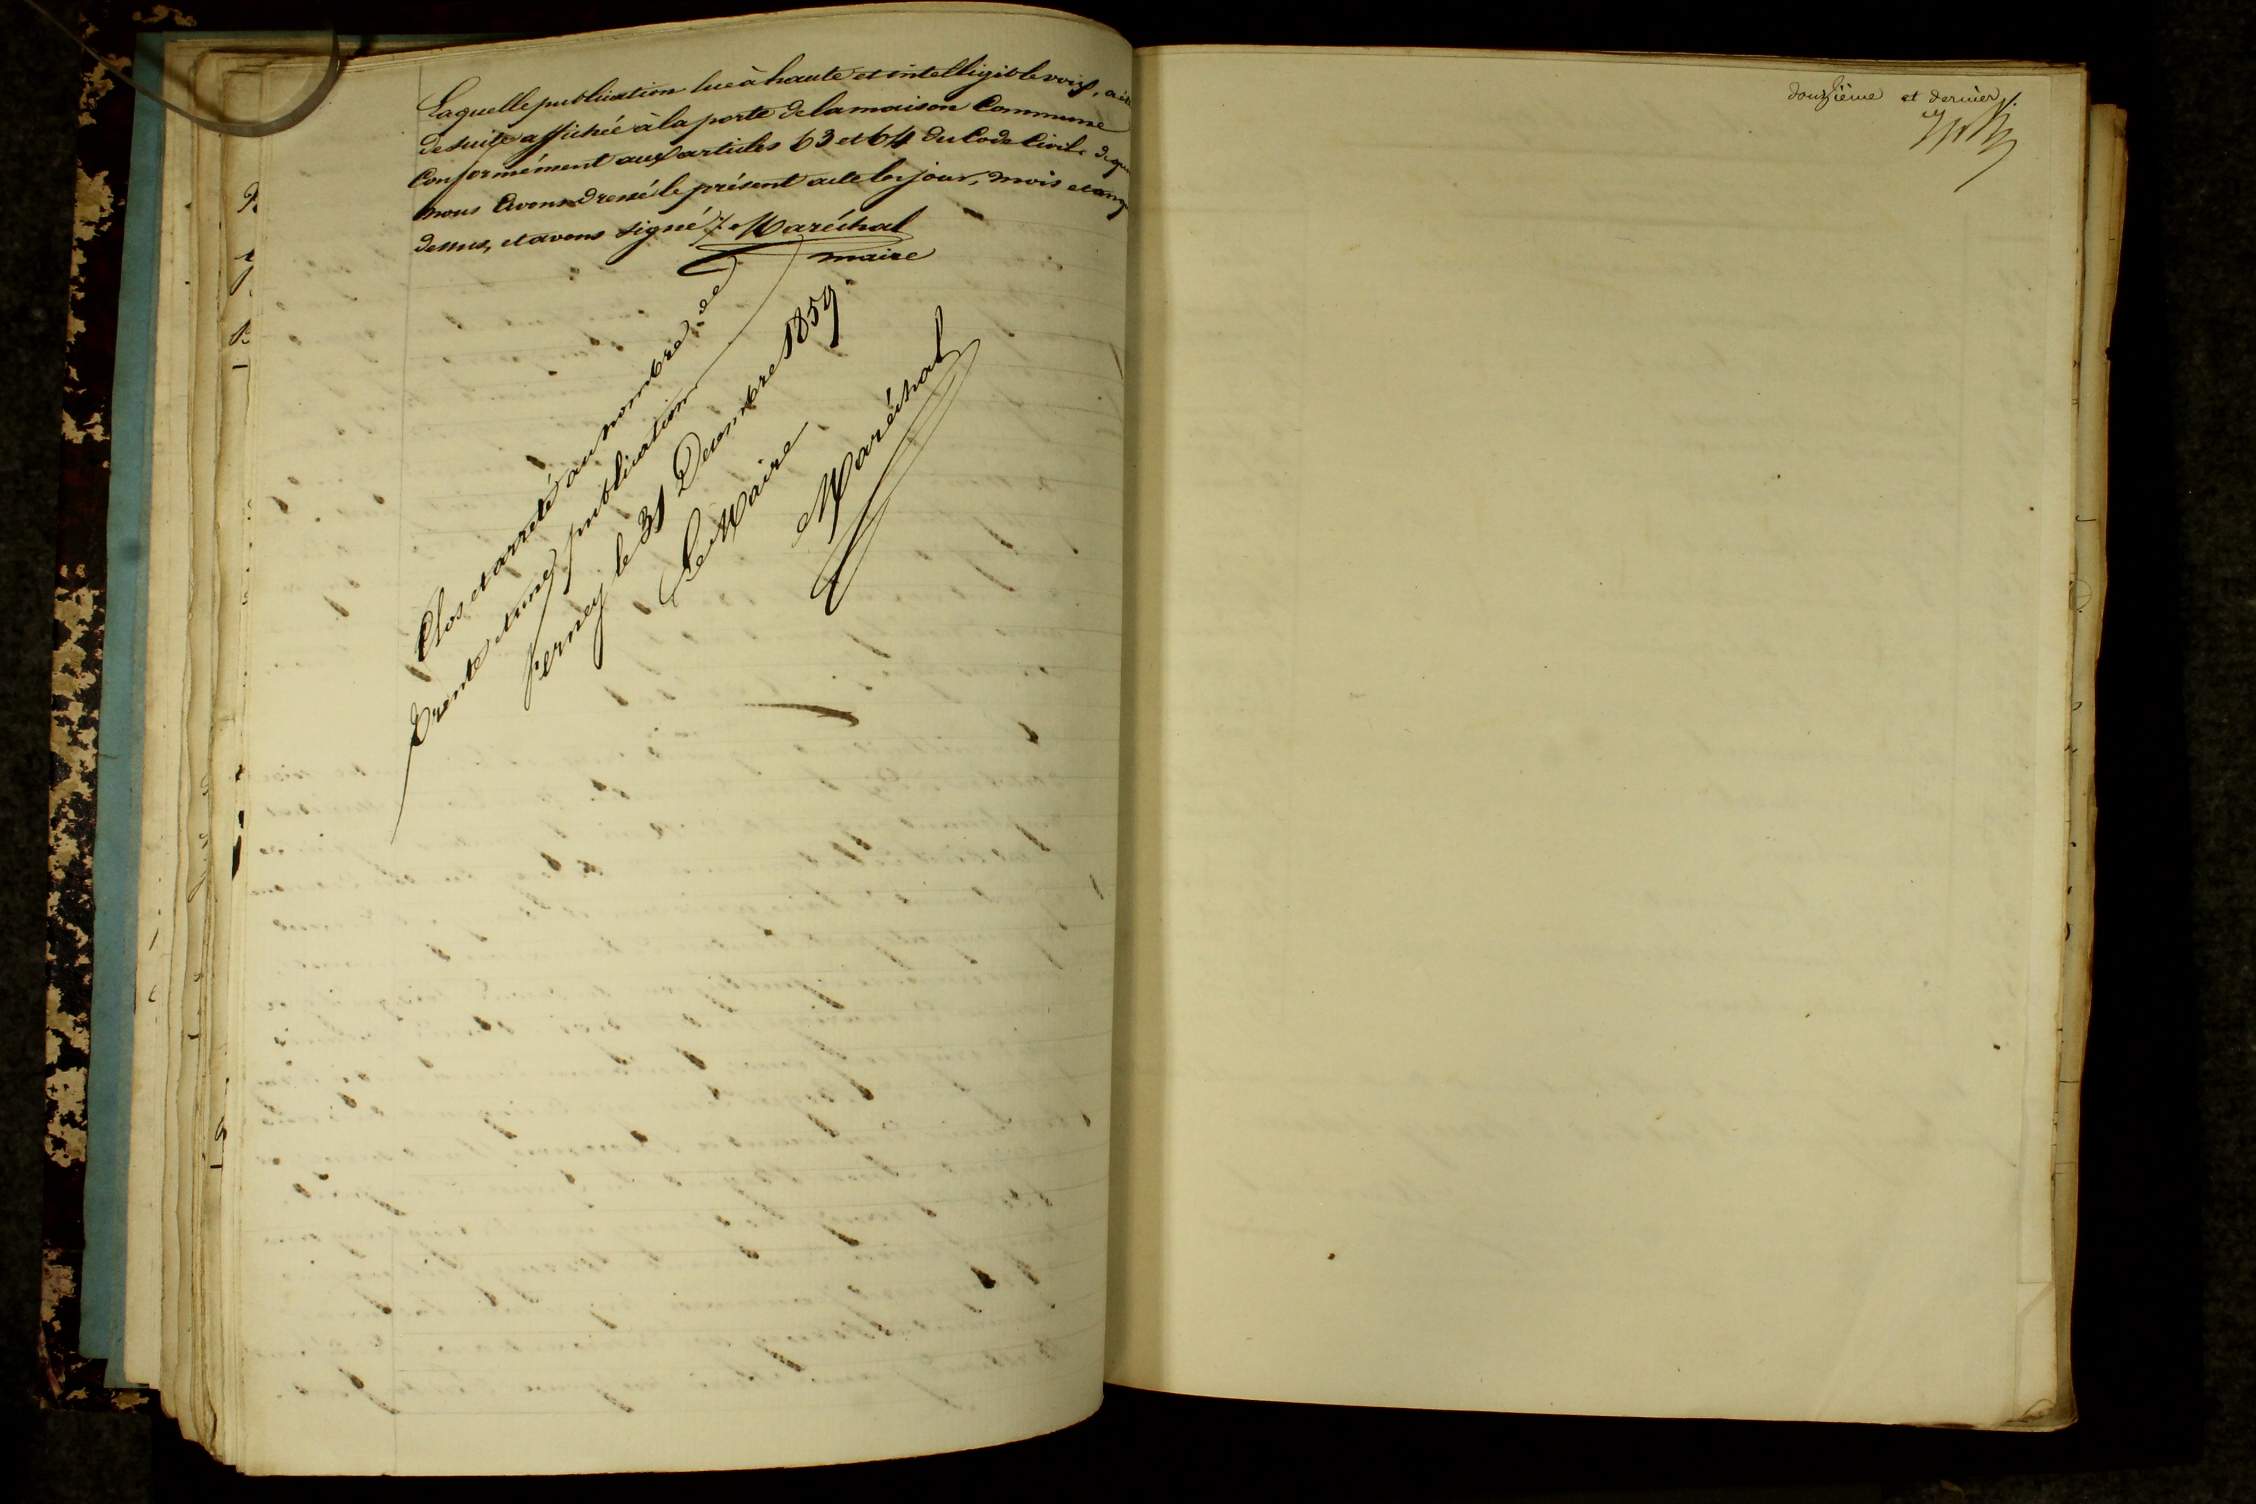 Laquelle publication lue à haute et intelligible voix, a été
de suite affichée à la porte de la maison Commune
Conformément aux articles 63 et 64 du Code Civil. de que
nous avons dressé le présent acte les jour, mois et an
dessus, et avons signé /. Maréchal
maire
Clos et arrêté au nombre de
trente et une publication
ferney le 31 Decembre 1859
Le Maire
Maréchal
douzième et dernier